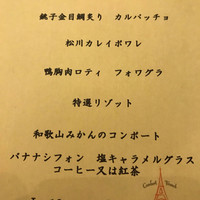 銚子金目鯛炙り　カルパッチョ
松川カレイポワレ
鴨胸肉ロティ　フォワグラ
特選リゾット
和歌山みかんのコンポート
バナナシフォン　塩キャラメルグラス
コーヒー又は紅茶